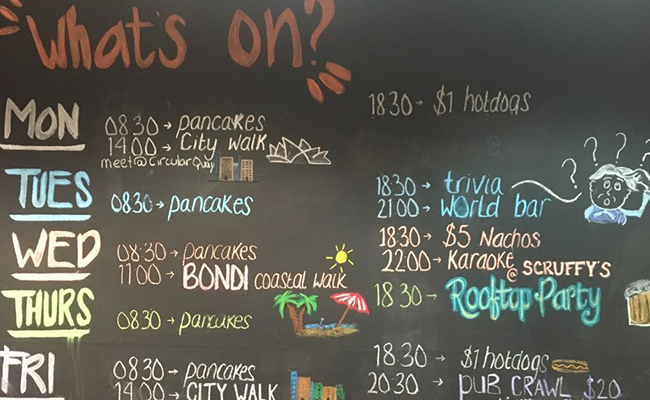 What's on?
MON
0830 → pancakes
1400 → City walk
meet@Circular Quay
1830 → $1 hotdogs
TUES
0830 → pancakes
1830 → trivia
2100 → World bar
WED
08:30 → pancakes
1100 → BONDI coastal walk
1830 → $5 Nachos
2200 → Karaoke @ SCRUFFY'S
THURS
0830 → pancakes
1830 → Rooftop Party
FRI
0830 → pancakes
1400 → CITY WALK
1830 → $1 hotdogs
2030 → PUB CRAWL $20